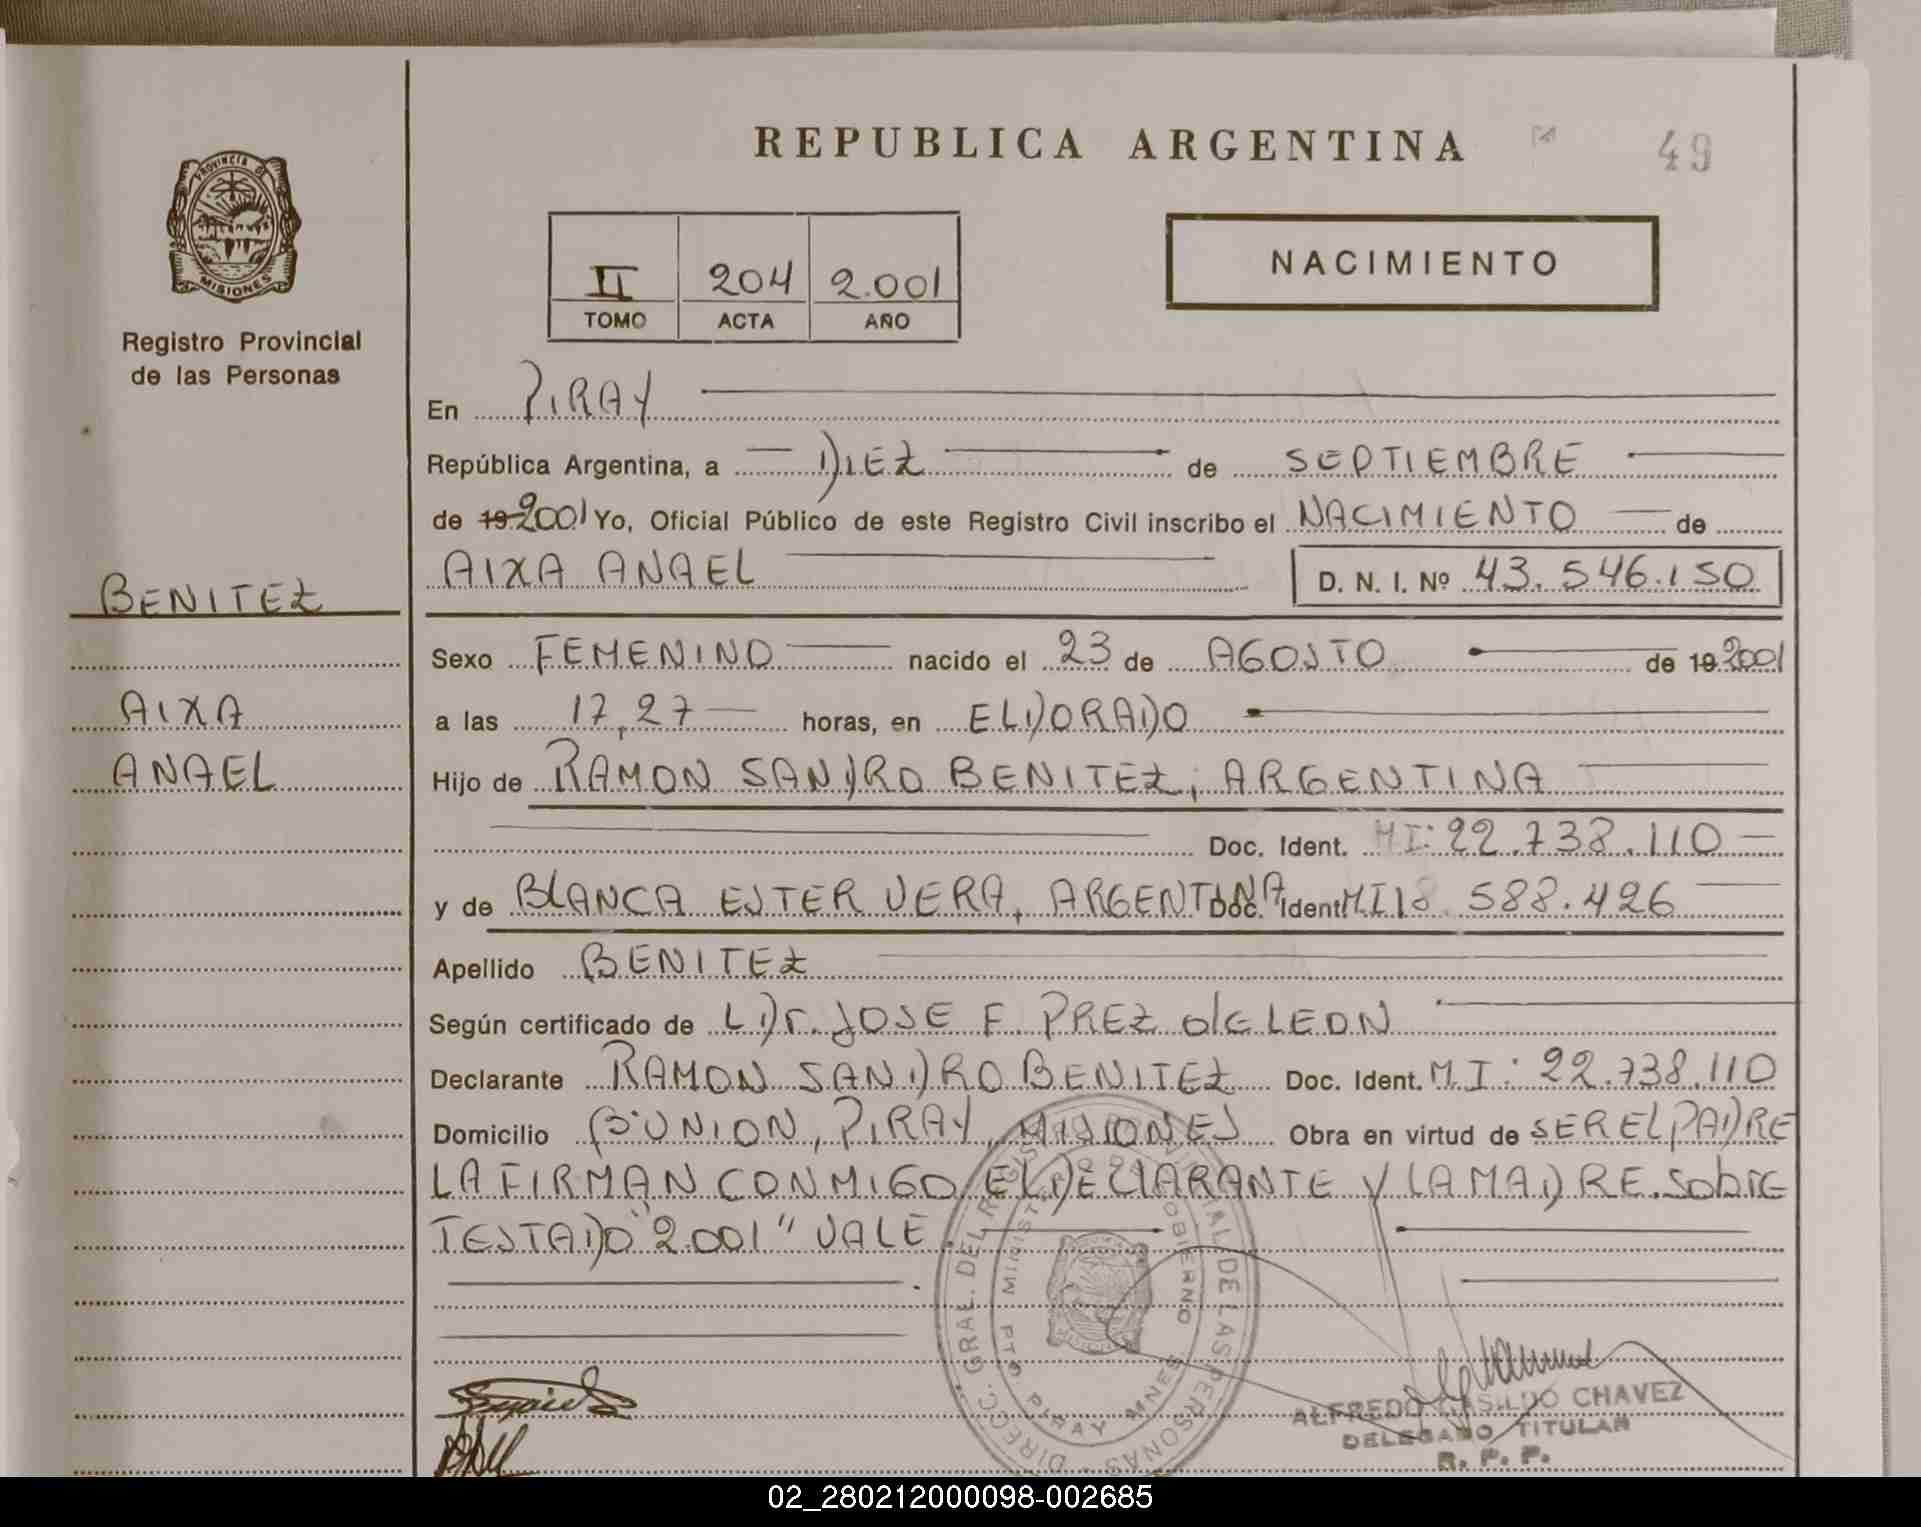 REPUBLICA ARGENTINA
49
PROVINCIA DE
MISIONES
Registro Provincial
de las Personas
II 204 2.001
TOMO ACTA AÑO
NACIMIENTO
En PIRAY
República Argentina, a DIEZ de SEPTIEMBRE
de 19 2001 Yo, Oficial Público de este Registro Civil inscribo el NACIMIENTO de
AIXA ANAEL D. N. I. Nº 43.546.150
BENITEZ
Sexo FEMENINO nacido el 23 de AGOSTO de 19 2001
AIXA
a las 17,27 horas, en ELDORADO
ANAEL
Hijo de RAMON SANDRO BENITEZ, ARGENTINA
Doc. Ident. MI: 22.738.110
y de BLANCA ESTER VERA, ARGENTINA Doc. Ident. MI 18.588.426
Apellido BENITEZ
Según certificado de L Dr. JOSE F. PREZ d/c LEON
Declarante RAMON SANDRO BENITEZ Doc. Ident. M.I: 22.738.110
Domicilio Bº UNION, PIRAY, MISIONES Obra en virtud de SER EL PADRE
LA FIRMAN CONMIGO EL DECLARANTE Y LA MADRE. SObrE
TESTADO "2.001" VALE.
DIRECC. GRAL. DEL REGISTRO PROVINCIAL DE LAS PERSONAS
MINISTERIO GOBIERNO
PTO PIRAY MNES
ALFREDO CASILDO CHAVEZ
DELEGADO TITULAR
R. P. P.
02_280212000098-002685